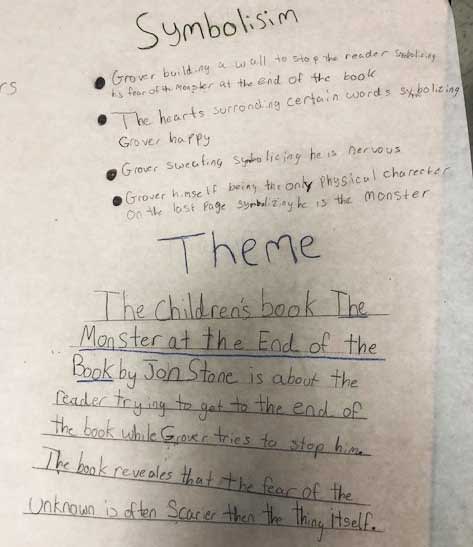 Symbolisim
rs
Grover building a wall to stop the reader symbolizing
his fear of the monster at the end of the book
The hearts surronding certain words symbolizing
Grover happy
Grover sweating symbolicing he is nervous
Grover himself being the only physical charecter
on the last page symbolizing he is the monster
Theme
The Children's book The
Monster at the End of the
Book by Jon Stone is about the
reader trying to get to the end of
the book while Grover tries to stop him.
The book reveales that the fear of the
unknown is often Scarier then the thing itself.